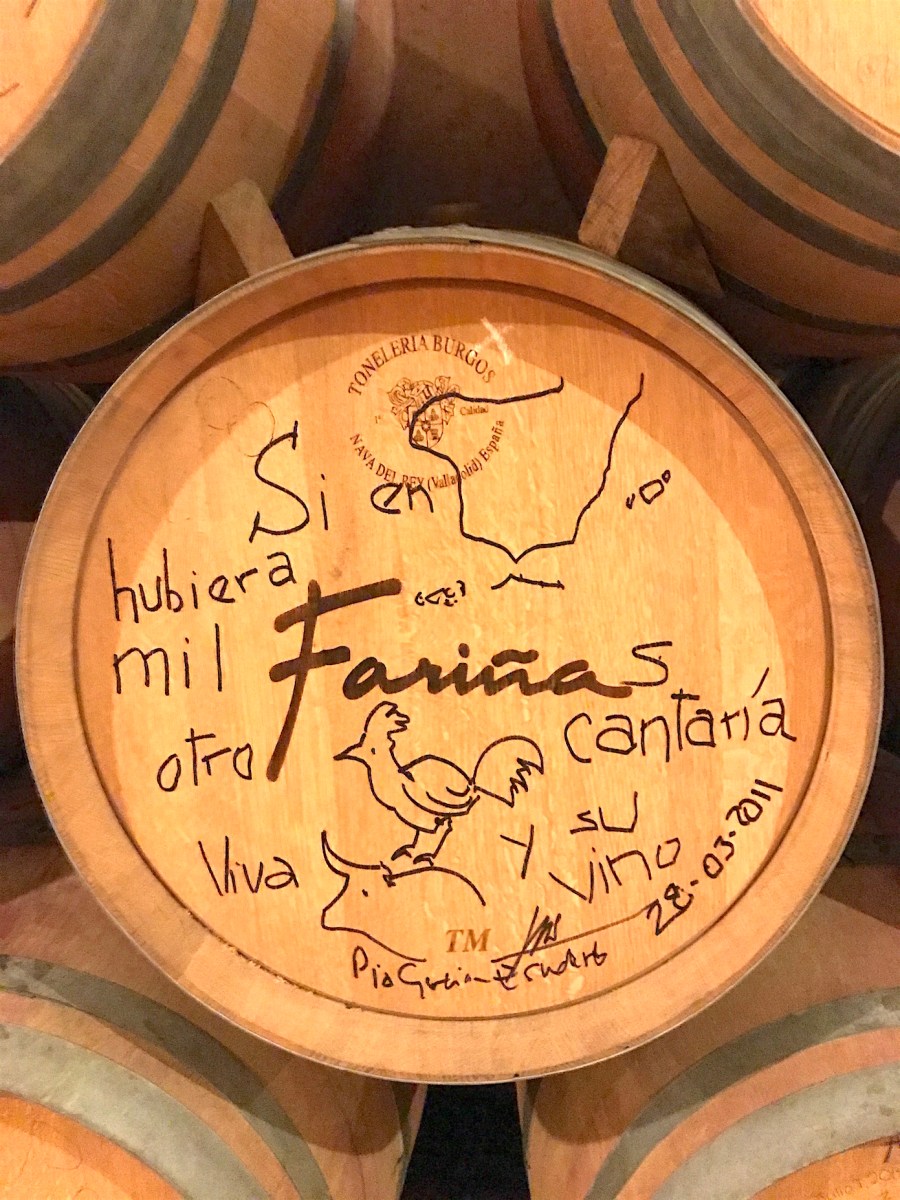 TONELERIA BURGOS
1ª Calidad
NAVA DEL REY (Valladolid) España
Si en
hubiera
mil Fariñas
otro cantaría
Viva y su
vino
28-03-2011
TM